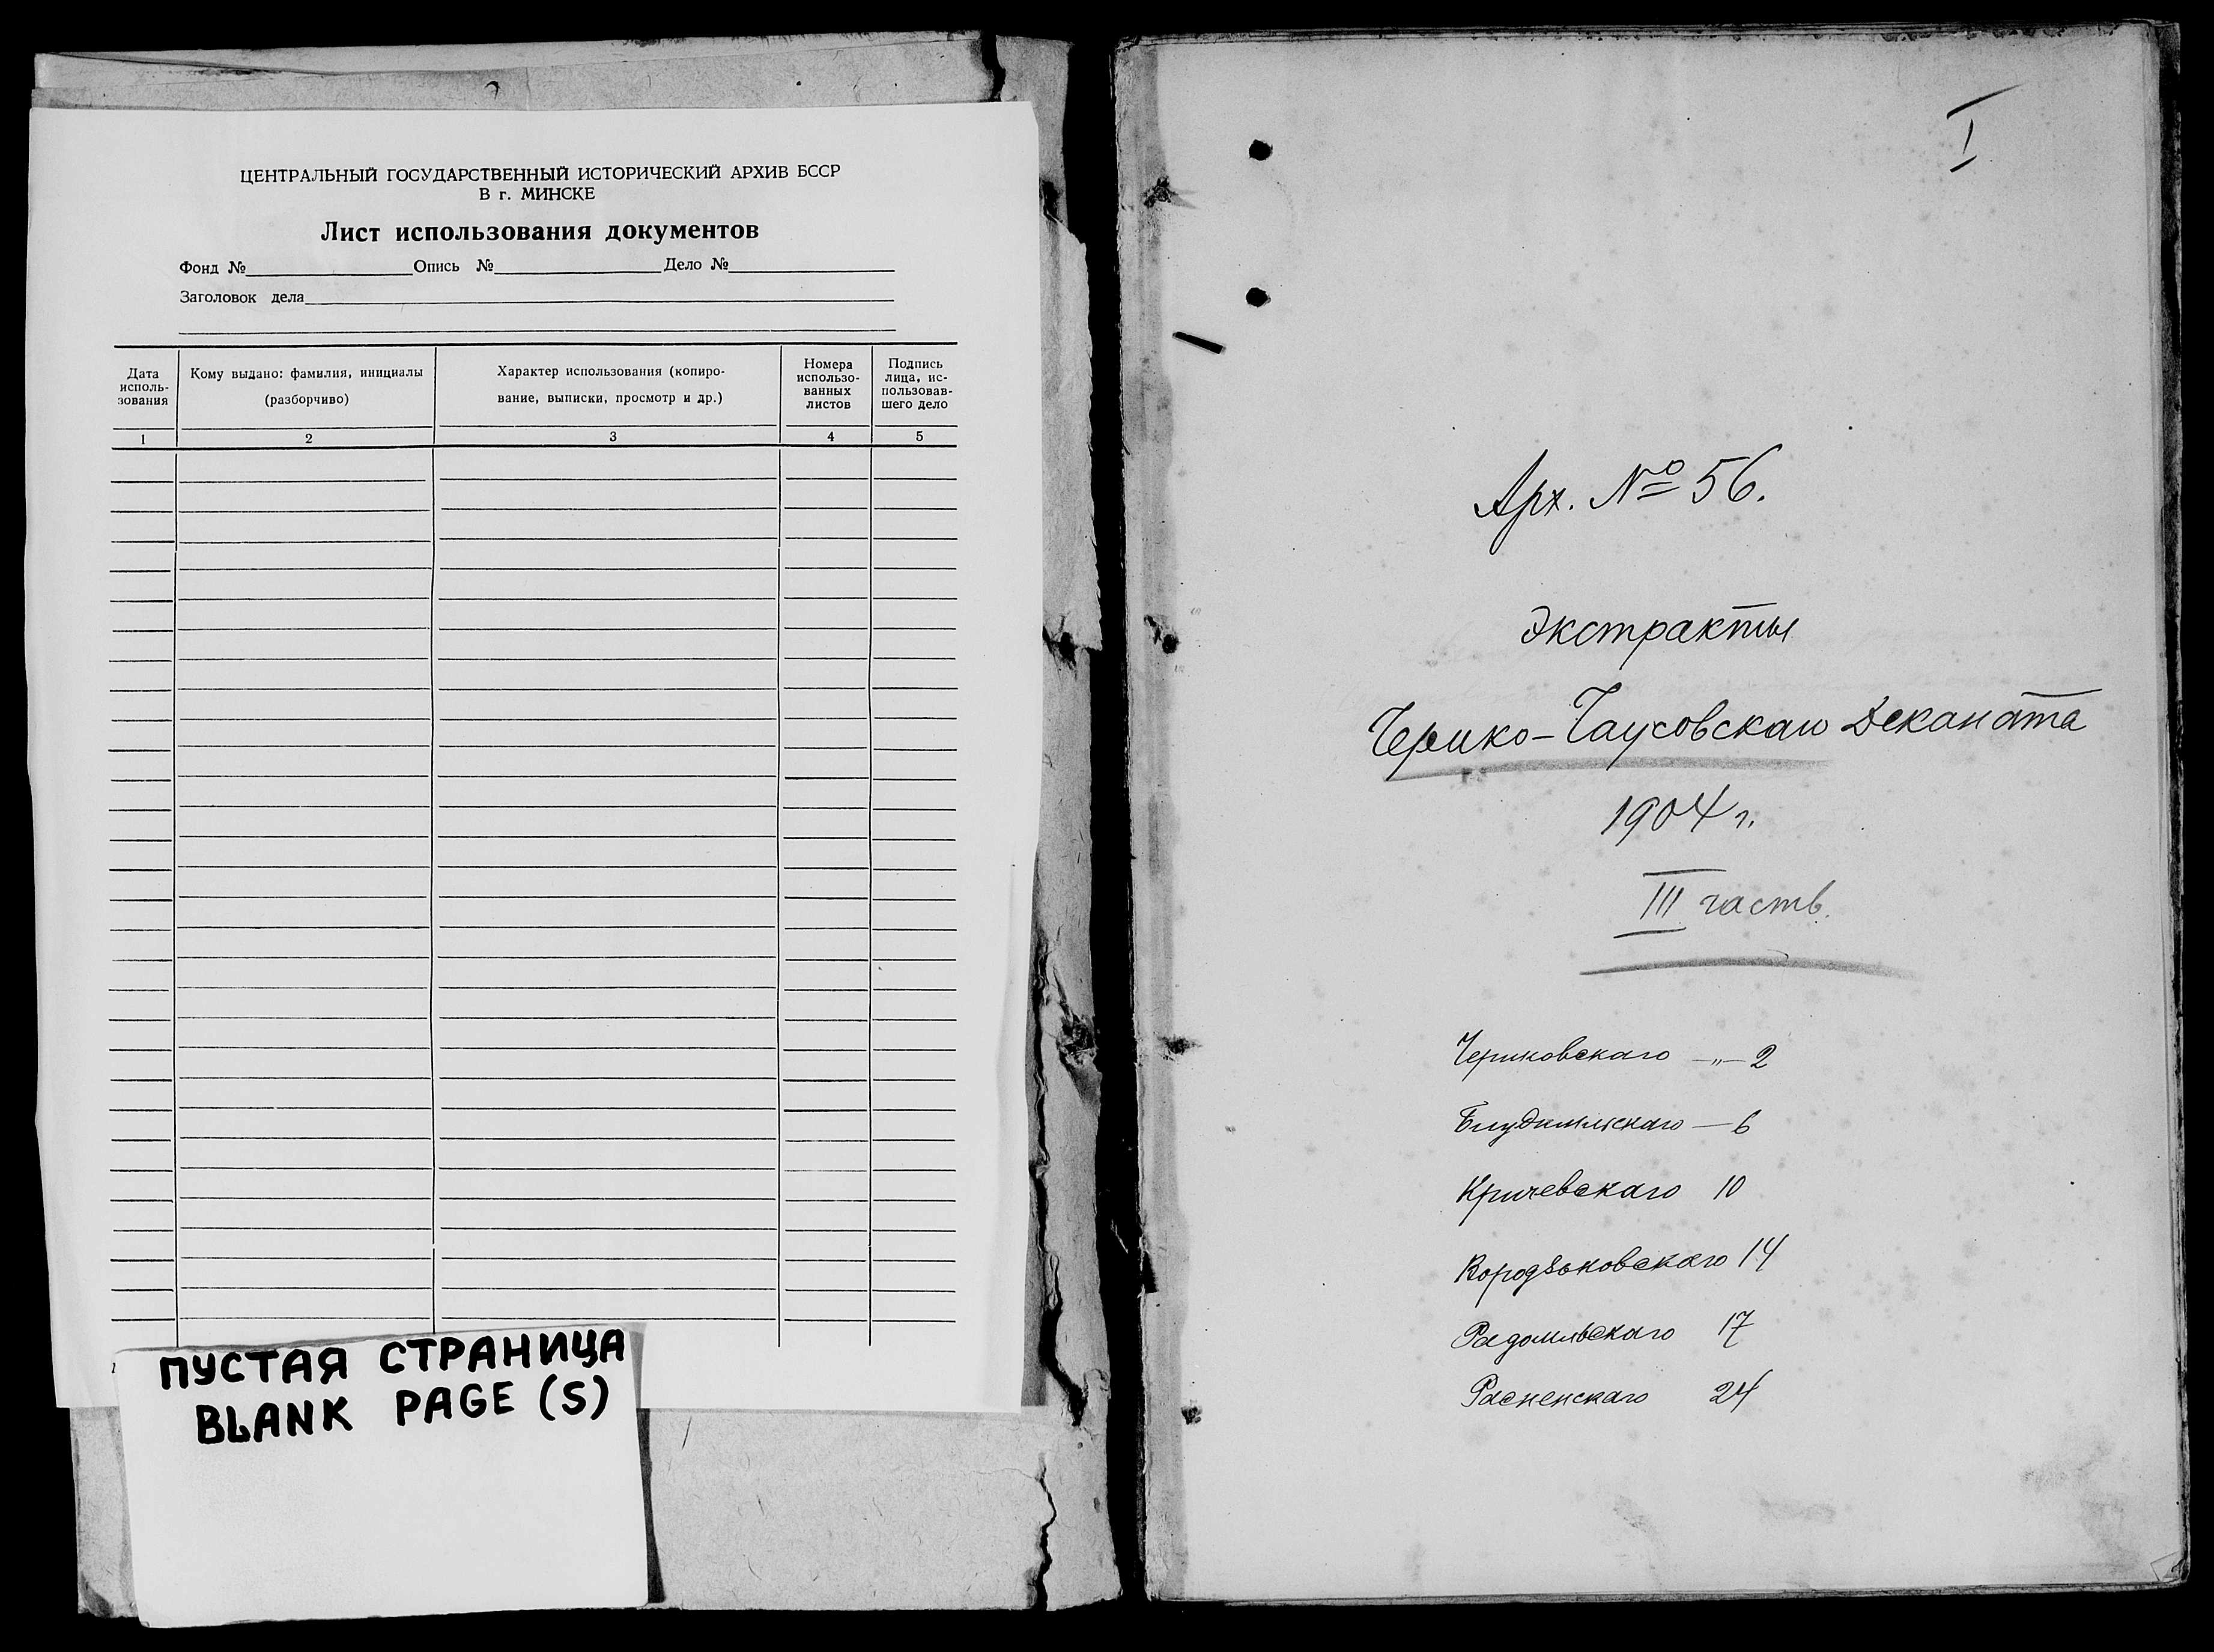 ЦЕНТРАЛЬНЫЙ ГОСУДАРСТВЕННЫЙ ИСТОРИЧЕСКИЙ АРХИВ БССР
В г. МИНСКЕ
Лист использования документов
Фонд № Опись № Дело №
Заголовок дела
Дата исполь-
зования
Кому выдано: фамилия, инициалы
(разборчиво)
Характер использования (копиро-
вание, выписки, просмотр и др.)
Номера
использо-
ванных
листов
Подпись
лица, ис-
пользовав-
шего дело
1 2 3 4 5
ПУСТАЯ СТРАНИЦА
BLANK PAGE (S)
I
Арх. № 56.
Экстракты
Черико-Чаусовскаго Деканата
1904 г.
III часть.
Чериковскаго —„— 2
— 6
Кричевскаго 10
Городзьковскаго 14
Радомльскаго 17
Расненскаго 24